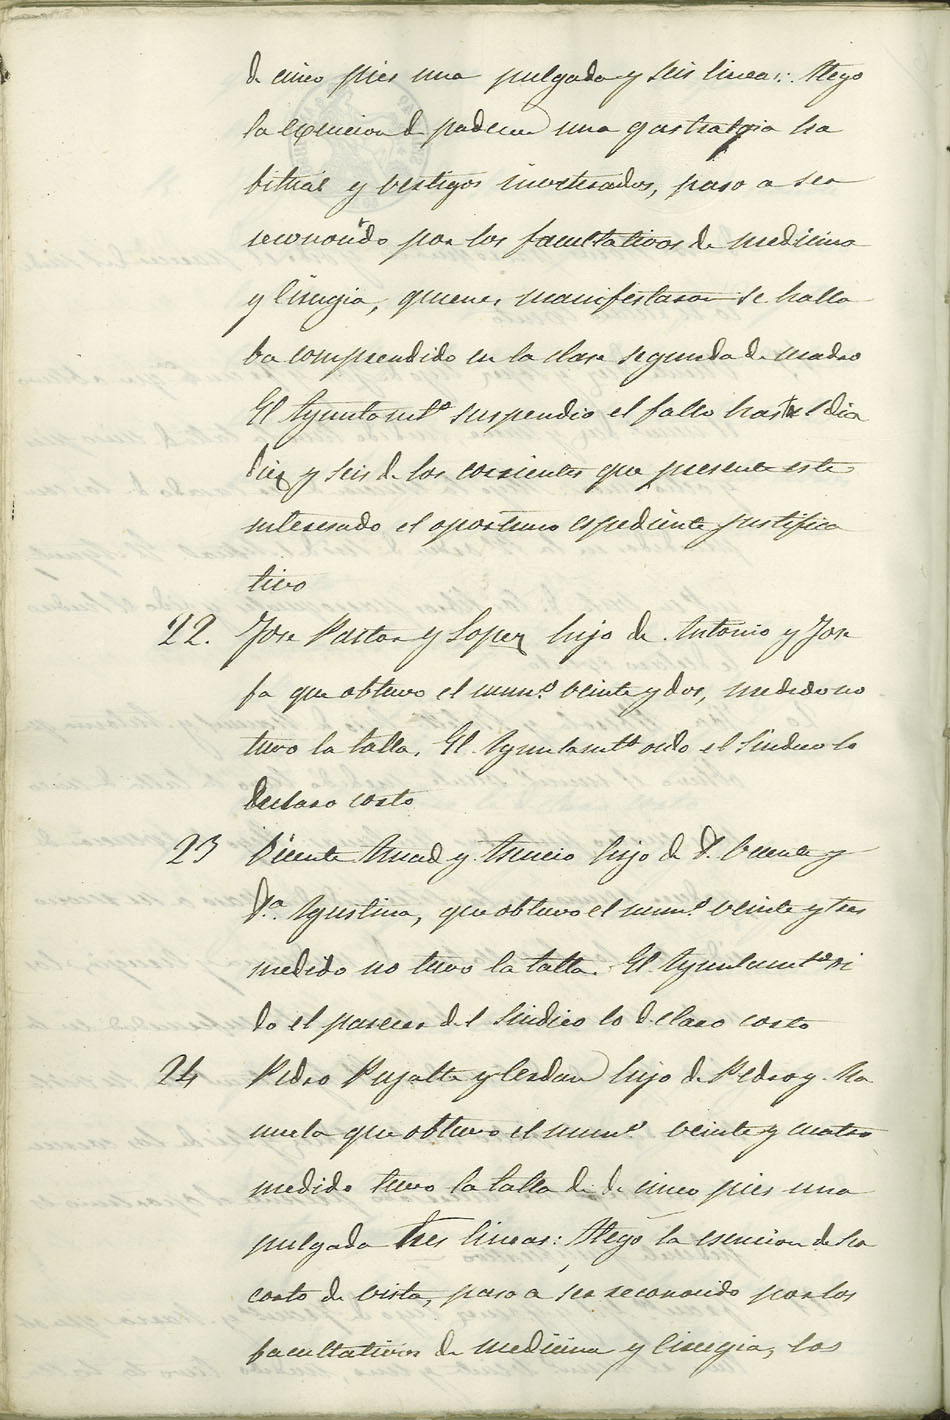 de cinco pies una pulgada y seis lineas: Alego
la esencion de padecer una gastralgia ha
bitual y vestigos inveterados, paso a ser
reconocido por los facultativos de medicina
y cirugia, quienes manifestaron se halla
ba comprendido en la clase segunda de cuadro
El Ayuntamtº suspendio el fallo hasta el dia
diez y seis de los corrientes que presente este
interesado el oportuno espediente justifica
tivo
22. Jose Pastor y Lopez hijo de Antonio y Jose
fa que obtuvo el numº veinte y dos, medido no
tuvo la talla. El Ayuntamtº oido el Sindico lo
declaro corto
23 Vicente Amad y Asencio hijo de D. Vicente y
Dª. Agustina, que obtuvo el numº veinte y tres
medido no tuvo la talla. El Ayuntamtº oi
do el parecer del Sindico lo declaro corto
24 Pedro Pujalte y Cerdan hijo de Pedro y Ma
nuela que obtuvo el numº veinte y cuatro
medido tuvo la talla de de cinco pies una
pulgada tres lineas: Alegó la esencion de ser
corto de vista, paso a ser reconocido por los
facultativos de medicina y cirugia, los